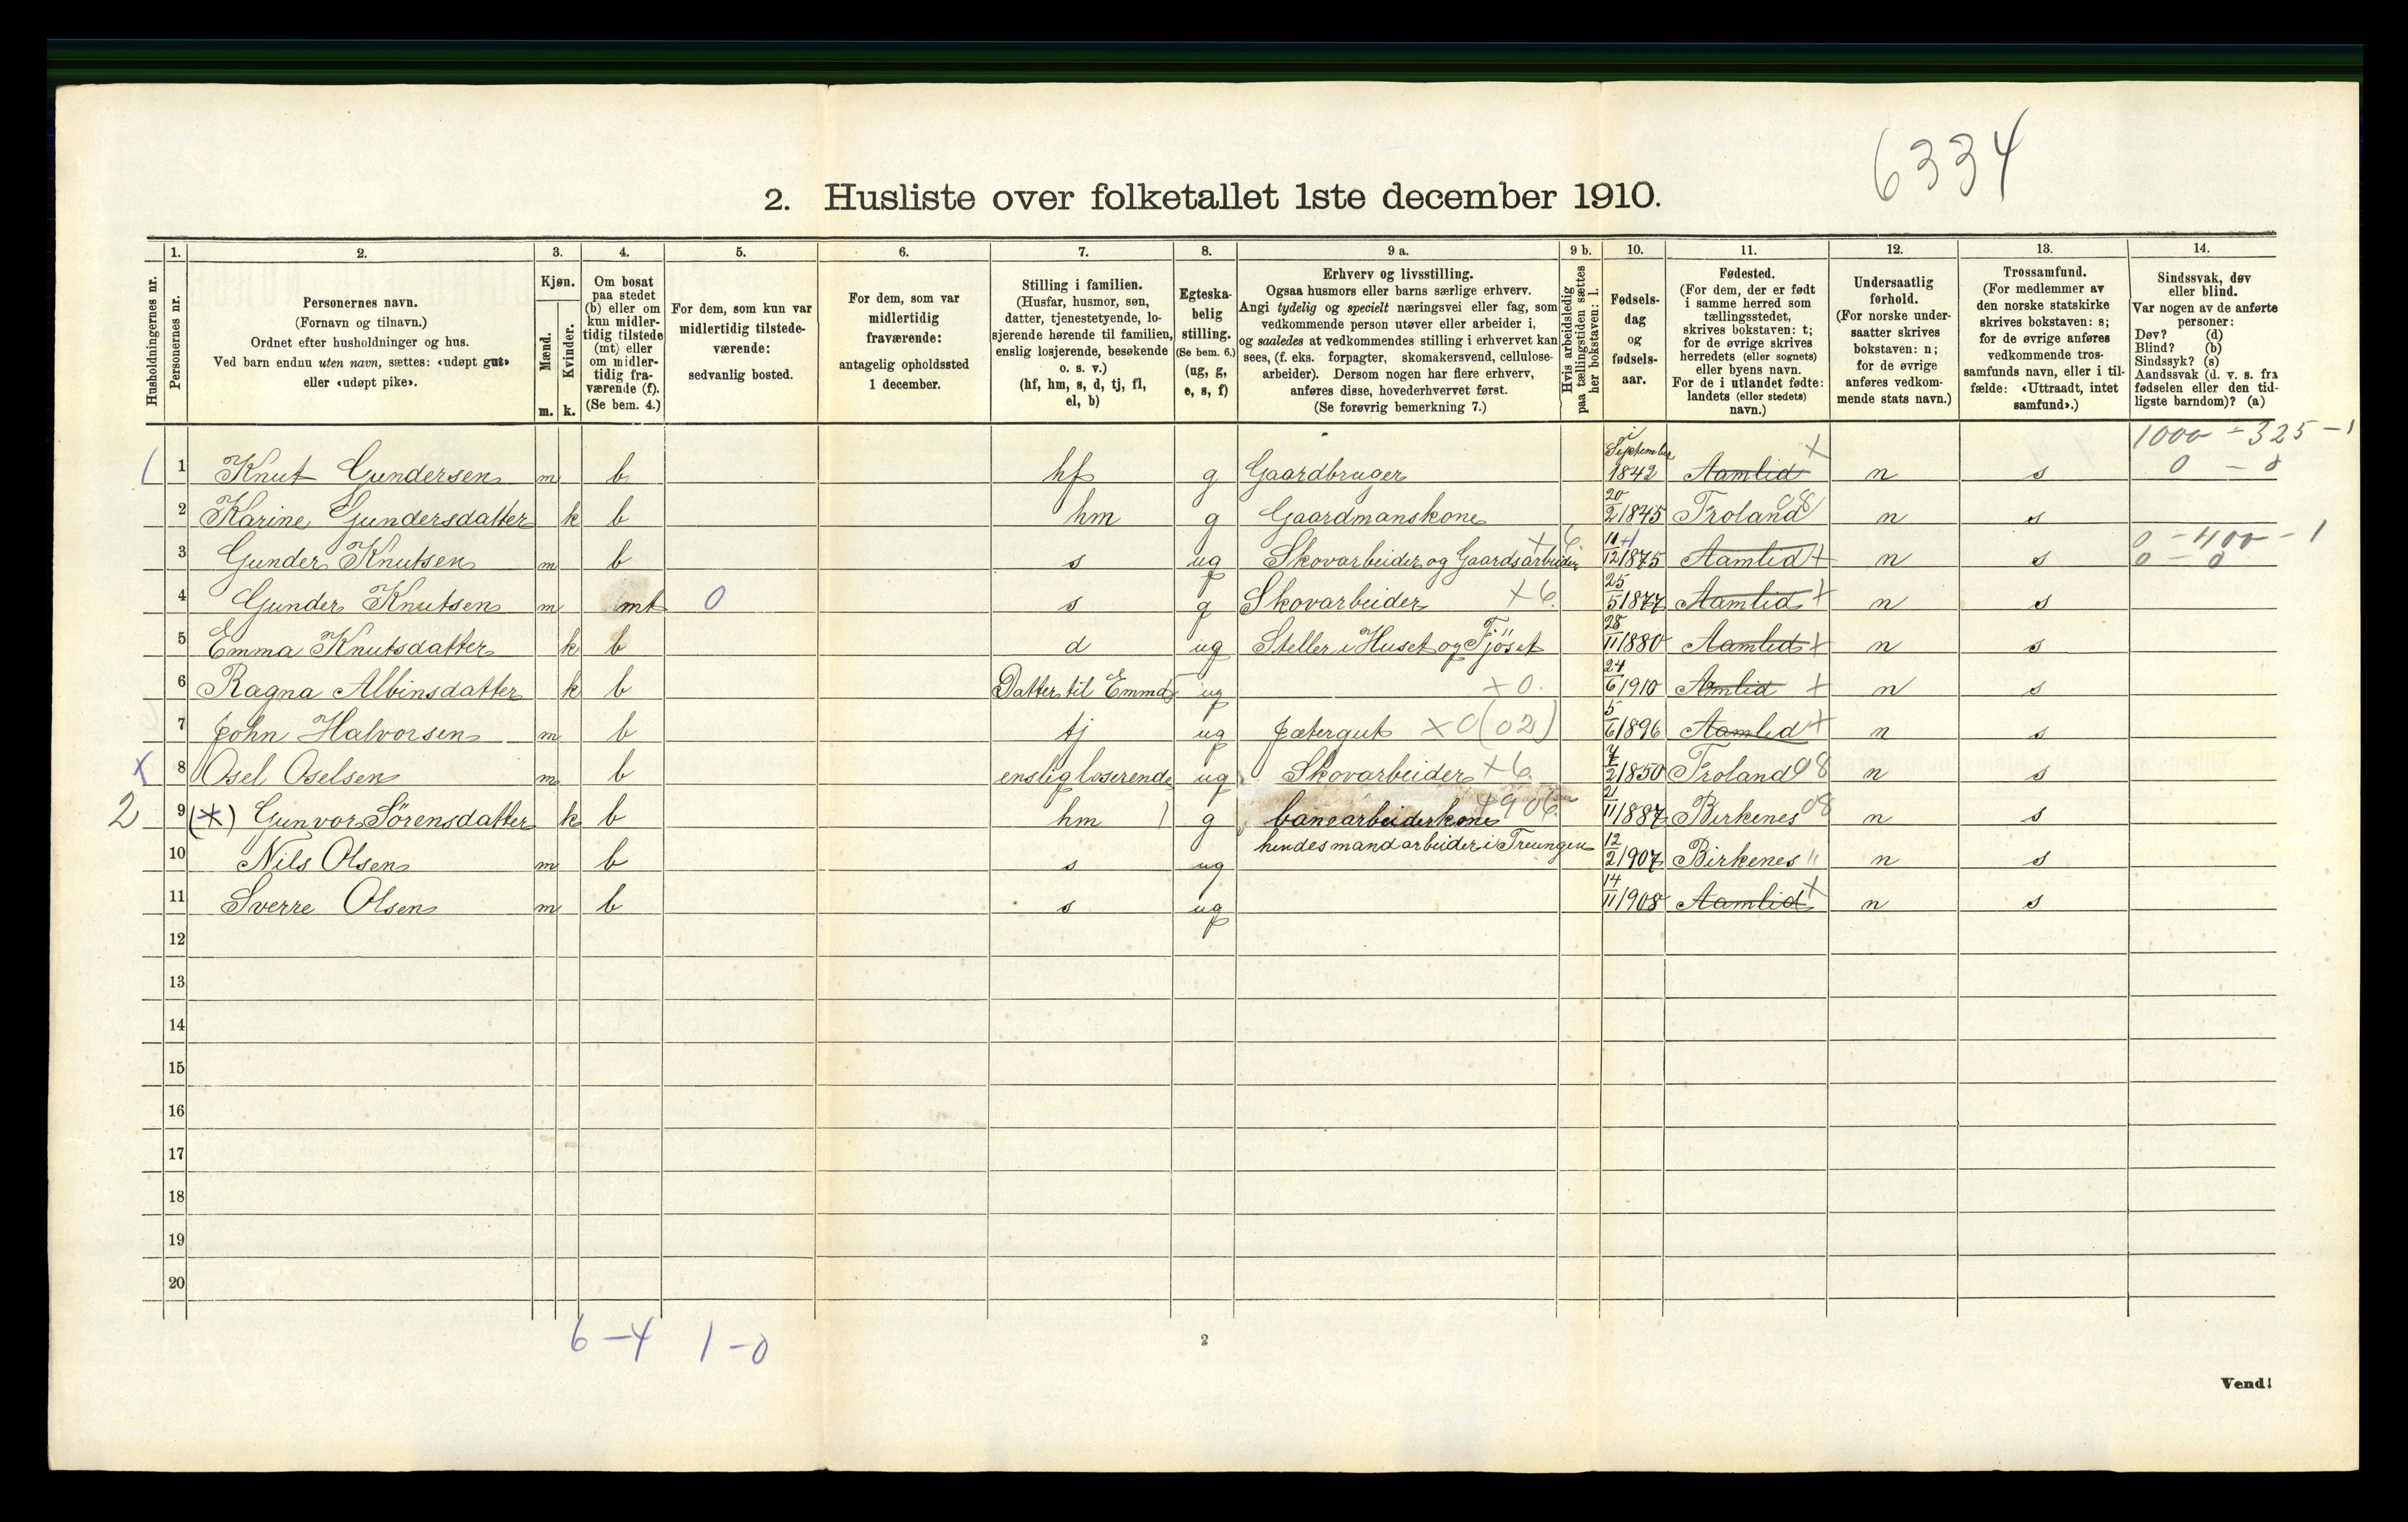 6334
2. Husliste over folketallet 1ste december 1910.
Husholdningernes nr.
1. Personernes nr.
2. Personernes navn.
(Fornavn og tilnavn.)
Ordnet efter husholdninger og hus.
Ved barn endnu uten navn, sættes: «udøpt gut»
eller «udøpt pike».
3. Kjøn.
Mænd. m.
Kvinder. k.
4. Om bosat
paa stedet
(b) eller om
kun midler-
tidig tilstede
(mt) eller
om midler-
tidig fra-
værende (f).
(Se bem. 4.)
5. For dem, som kun var
midlertidig tilstede-
værende:
sedvanlig bosted.
6. For dem, som var
midlertidig
fraværende:
antagelig opholdssted
1 december.
7. Stilling i familien.
(Husfar, husmor, søn,
datter, tjenestetyende, lo-
sjerende hørende til familien,
enslig losjerende, besøkende
o. s. v.)
(hf, hm, s, d, tj, fl,
el, b)
8. Egteska-
belig
stilling.
(Se bem. 6.)
(ug, g,
e, s, f)
9 a. Erhverv og livsstilling.
Ogsaa husmors eller barns særlige erhverv.
Angi tydelig og specielt næringsvei eller fag, som
vedkommende person utøver eller arbeider i,
og saaledes at vedkommendes stilling i erhvervet kan
sees, (f. eks. forpagter, skomakersvend, cellulose-
arbeider). Dersom nogen har flere erhverv,
anføres disse, hovederhvervet først.
(Se forøvrig bemerkning 7.)
9 b. Hvis arbeidsledig
paa tællingstiden sættes
her bokstaven: l.
10. Fødsels-
dag
og
fødsels-
aar.
11. Fødested.
(For dem, der er født
i samme herred som
tællingsstedet,
skrives bokstaven: t;
for de øvrige skrives
herredets (eller sognets)
eller byens navn.
For de i utlandet fødte:
landets (eller stedets)
navn.)
12. Undersaatlig
forhold.
(For norske under-
saatter skrives
bokstaven: n;
for de øvrige
anføres vedkom-
mende stats navn.)
13. Trossamfund.
(For medlemmer av
den norske statskirke
skrives bokstaven: s;
for de øvrige anføres
vedkommende tros-
samfunds navn, eller i til-
fælde: «Uttraadt, intet
samfund».)
14. Sindssvak, døv
eller blind.
Var nogen av de anførte
personer:
Døv? (d)
Blind? (b)
Sindssyk? (s)
Aandssvak (d. v. s. fra
fødselen eller den tid-
ligste barndom)? (a)
1 1 Knut Gundersen m b hf g Gaardbruger i September 1842 Aamlid + n s 1000 - 325 - 1 0 - 0
2 Karine Gundersdatter k b hm g Gaardmanskone 20/2 1845 Froland 08 n s
3 Gunder Knutsen m b s ug Skovarbeider og Gaardsarbeider + 6 11/12 1875 Aamlid + n s 0 - 400 - 1 0 - 0
4 Gunder Knutsen m mt 0 s g Skovarbeider +6. 25/5 1877 Aamlid + n s
5 Emma Knutsdatter k b d ug Steller i Huset og Fjöset 28/11 1880 Aamlid + n s
6 Ragna Albinsdatter k b Datter til Emma 5 ug +0. 24/6 1910 Amlid + n s
7 John Halvorsen m b tj ug Jætergut +0(02) 5/6 1896 Aamlid + n s
x 8 Osel Oselsen m b enslig loserende ug Skovarbeider +6. 7/2 1850 Froland 08 n s
2 9 (*) Gunvor Sörensdatter k b hm 1 g banearbeiderkone +906 21/11 1887 Birkenes 08 n s
hendes mand arbeider i Treungen
10 Nils Olsen m b s ug 12/2 1907 Birkenes " n s
11 Sverre Olsen m b s ug 14/11 1908 Aamlid + n s
12
13
14
15
16
17
18
19
20
6 - 4 1 - 0
2
Vend!